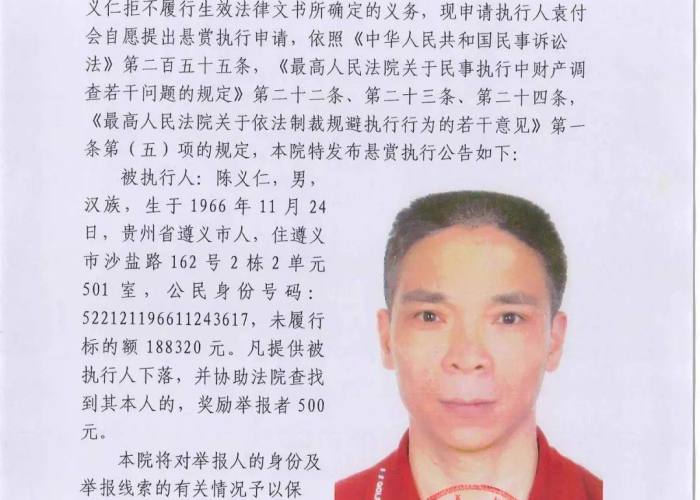 义仁拒不履行生效法律文书所确定的义务，现申请执行人袁付
会自愿提出悬赏执行申请，依照《中华人民共和国民事诉讼
法》第二百五十五条，《最高人民法院关于民事执行中财产调
查若干问题的规定》第二十二条、第二十三条、第二十四条，
《最高人民法院关于依法制裁规避执行行为的若干意见》第一
条第（五）项的规定，本院特发布悬赏执行公告如下：
被执行人：陈义仁，男，
汉族，生于 1966 年 11 月 24
日，贵州省遵义市人，住遵义
市沙盐路 162 号 2 栋 2 单元
501 室，公民身份号码：
522121196611243617，未履行
标的额 188320 元。凡提供被
执行人下落，并协助法院查找
到其本人的，奖励举报者 500
元。
本院将对举报人的身份及
举报线索的有关情况予以保